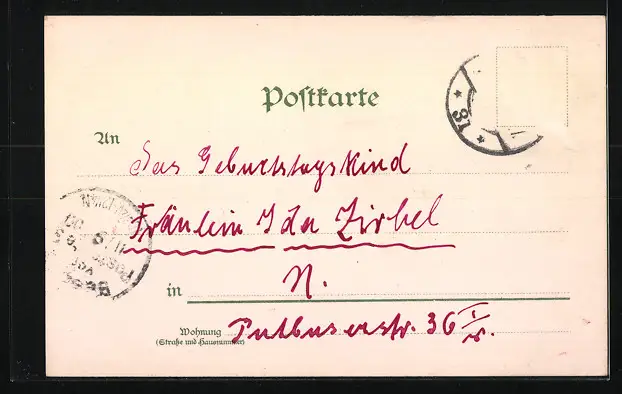 Postkarte
* 31 *
An
das Geburtstagskind
Fräulein Ida Zirbel
in N.
Wohnung
(Straße und Hausnummer)
Putbuserstr. 36 I r.